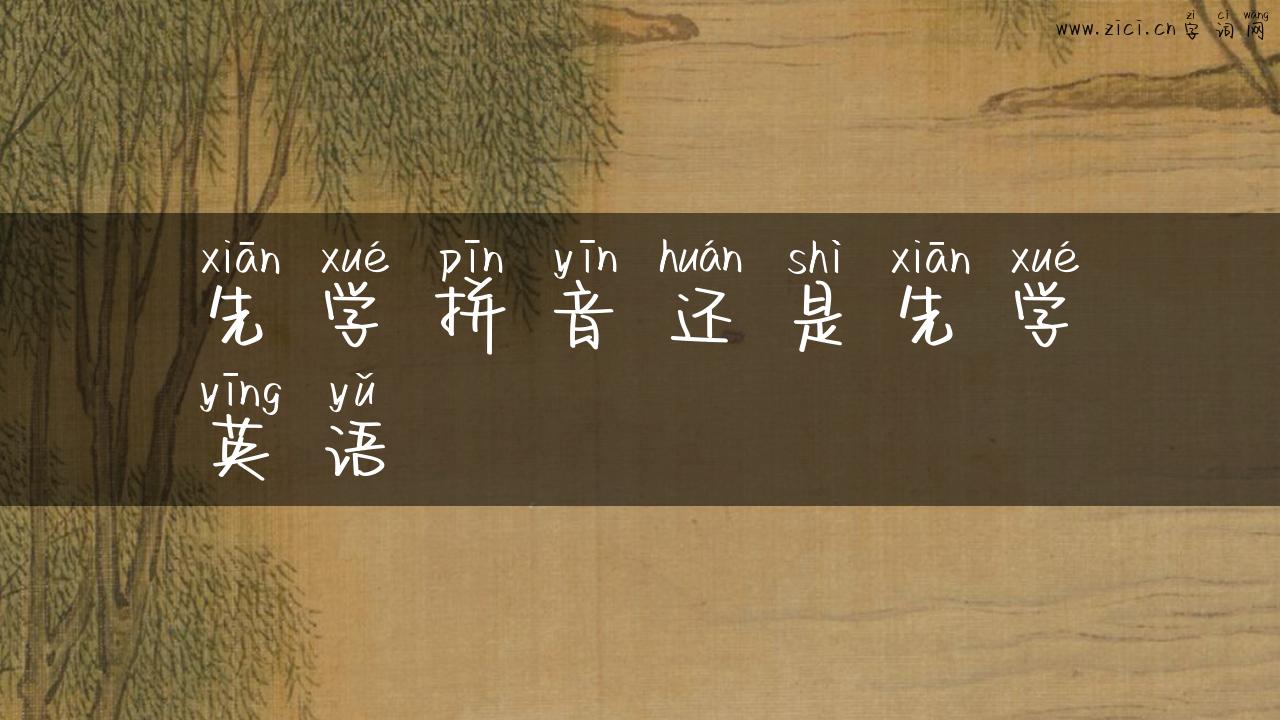 zì cí wǎng
www.zici.cn 字词网
xiān xué pīn yīn huán shì xiān xué
先学拼音还是先学
yīng yǔ
英语